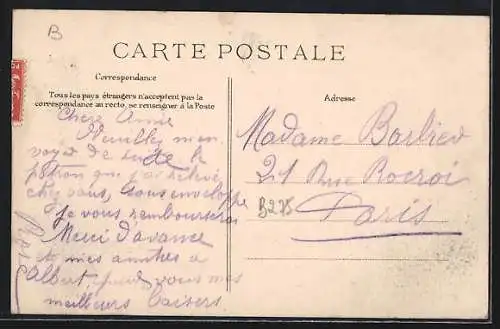 B
CARTE POSTALE
Correspondance
Tous les pays étrangers n'acceptent pas la
correspondance au recto, se renseigner à la Poste
Adresse
Chère Amie
Veuillez m'en
voyer de suite le
patron que j'ai
chez vous, sous enveloppe
je vous rembourserai
Merci d'avance
et mes amitiés a
Albert, pour vous mes
meilleurs baisers
Madame Barbier
21 Rue Rocroi
B275
Paris